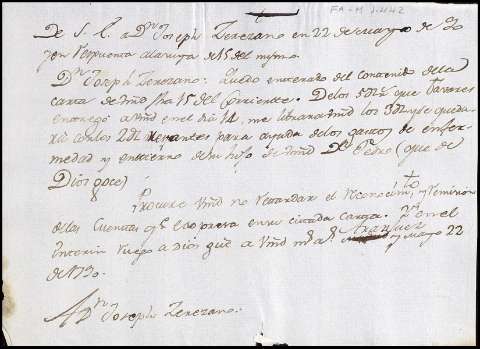 FA-M 1.442
De S. E. a Dn Joseph Zerezano en 22 de mayo de 30
en respuesta a la suya de 15 del mismo
Dn Joseph Zerezano: Quedo enterado del contenido de la
carta de Vmd fha 15 del Corriente. De los 5 que Tavares
entregó a Vmd en el dia 14, me librara Vmd los 3 y se queda
rá con los 2 restantes para ayuda de los gastos de enfer
medad y entierro de su hijo de Vmd Dn Pedro (que de
Dios goce)
Procure Vmd no retardar el Reconocimto y remision
de las Cuentas qe expresa en su citada carta. con el
Interin ruego a Dios gue a Vmd ms as Aranjuez y Mayo 22
de 1730.
A Dn Joseph Zerezano.